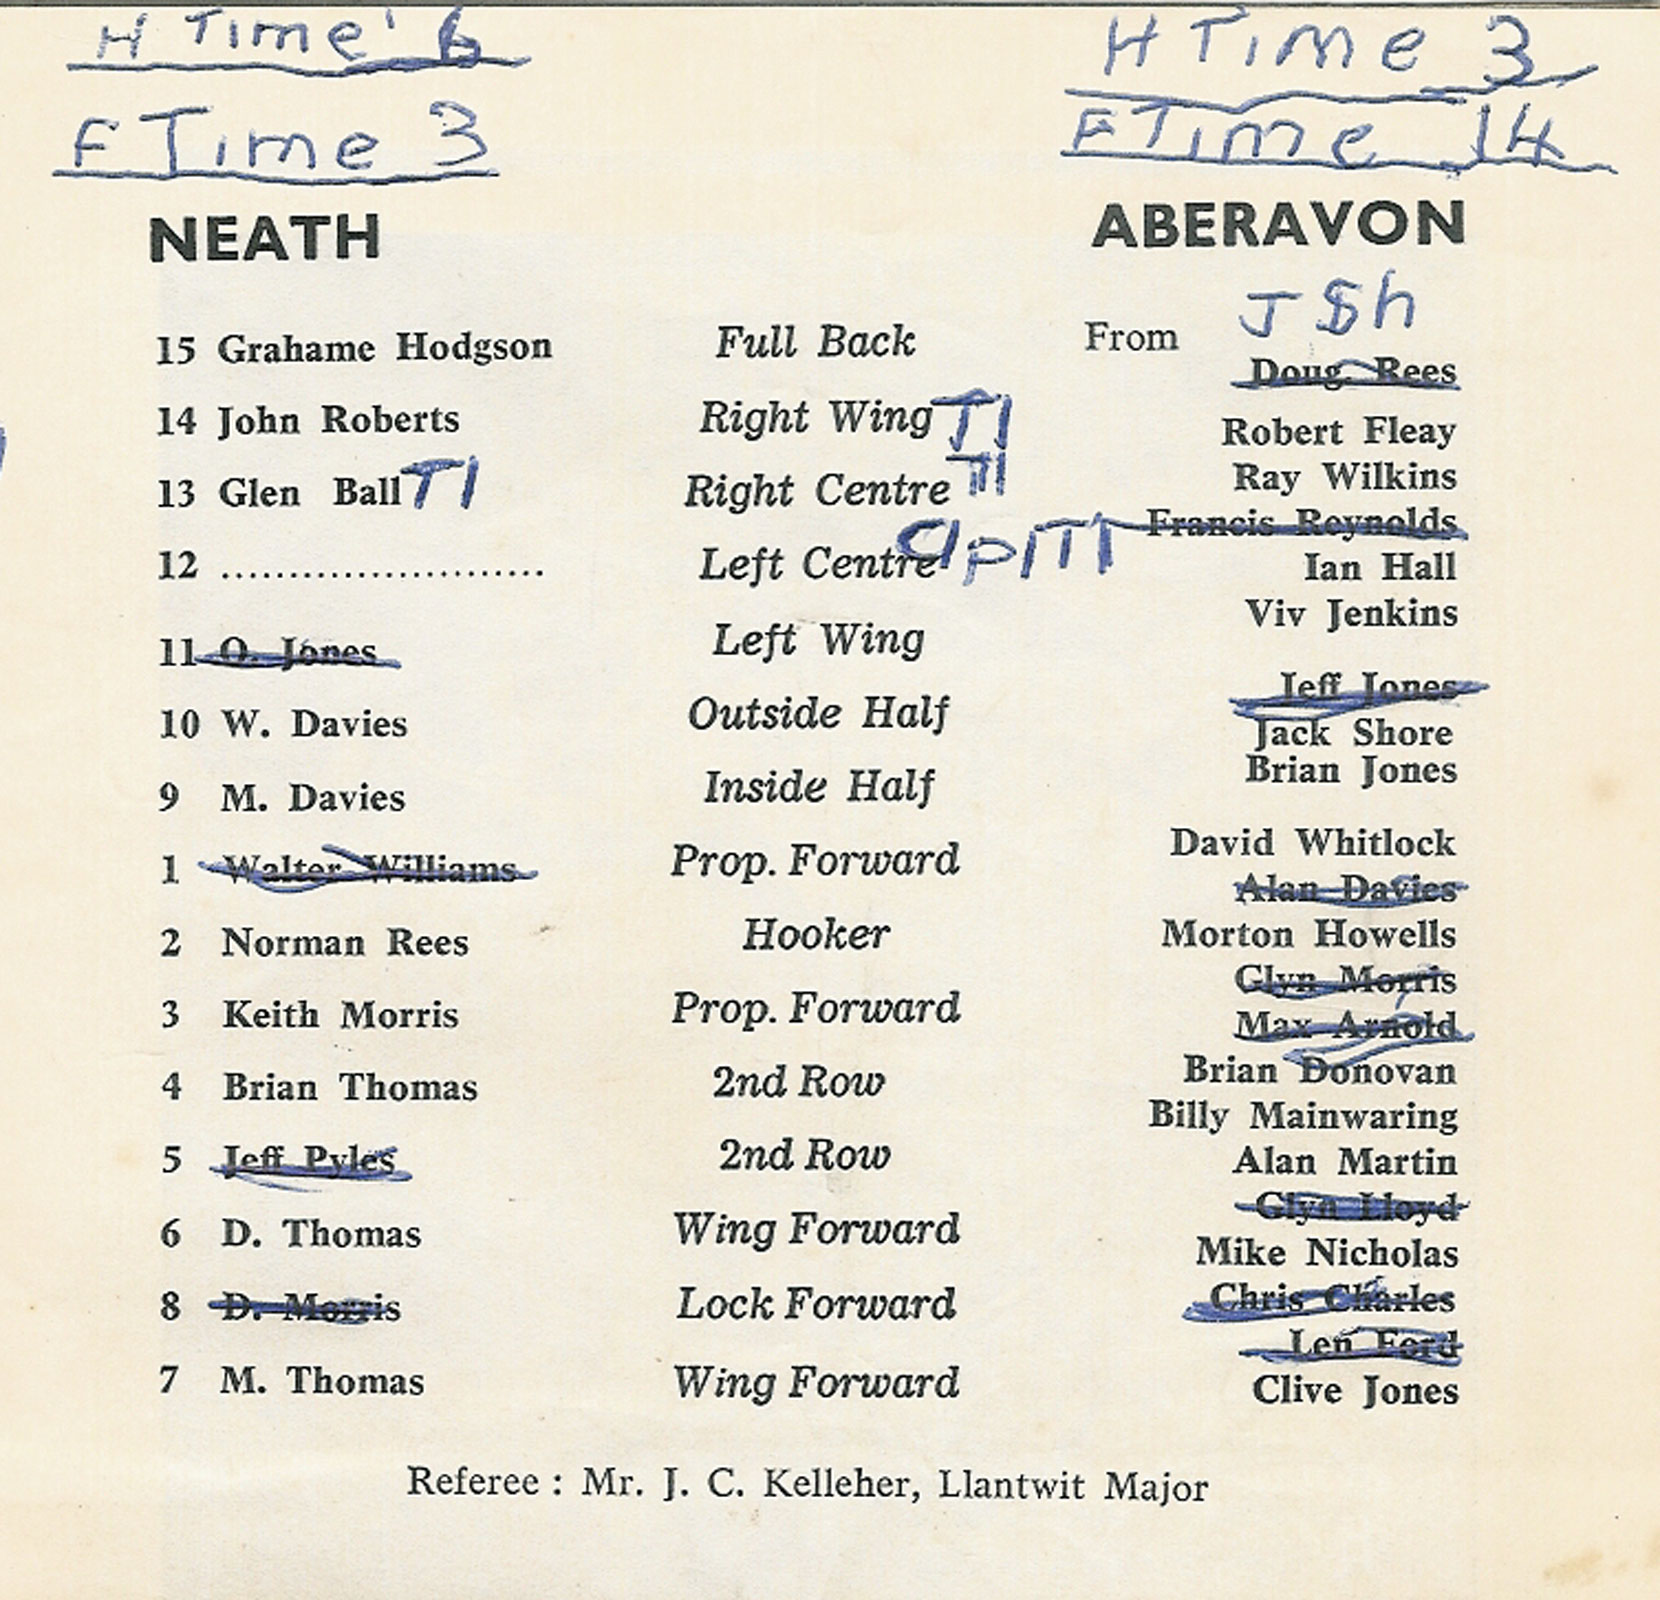 H Time 6 H Time 3
F Time 3 F Time 14
NEATH ABERAVON
J Sh
15 Grahame Hodgson Full Back From
Doug. Rees
14 John Roberts Right Wing T1 Robert Fleay
Ray Wilkins
13 Glen Ball T1 Right Centre T1
Francis Reynolds
12 ........................ Left Centre Ian Hall
Viv Jenkins
11 O. Jones Left Wing
Jeff Jones
10 W. Davies Outside Half Jack Shore
Brian Jones
9 M. Davies Inside Half
David Whitlock
1 Walter Williams Prop. Forward
Alan Davies
2 Norman Rees Hooker Morton Howells
Glyn Morris
3 Keith Morris Prop. Forward Max Arnold
Brian Donovan
4 Brian Thomas 2nd Row Billy Mainwaring
5 Jeff Pyles 2nd Row Alan Martin
Glyn Lloyd
6 D. Thomas Wing Forward Mike Nicholas
8 D. Morris Lock Forward Chris Charles
Len Ford
7 M. Thomas Wing Forward Clive Jones
Referee : Mr. J. C. Kelleher, Llantwit Major